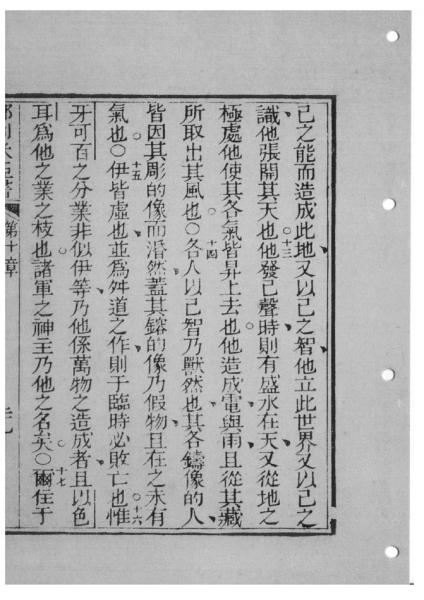 己之能而造成此地又以己之智他立此世界又以己之
識他張開其天也○十三他發己聲時則有盛水在天又從地之
極處他使其各氣皆昇上去也他造成電與雨且從其藏
所取出其風也○十四各人以己智乃獸然也其各鑄像的人
皆因其彫的像而渾然蓋其鎔的像乃假物且在之未有
氣也○十五伊皆虛也並為舛道之作則于臨時必敗亡也○十六惟
牙可百之分業非似伊等乃他係萬物之造成者且以色
耳為他之業之枝也諸軍之神主乃他之名矣○十七爾住于
耶利米亞書 第十章